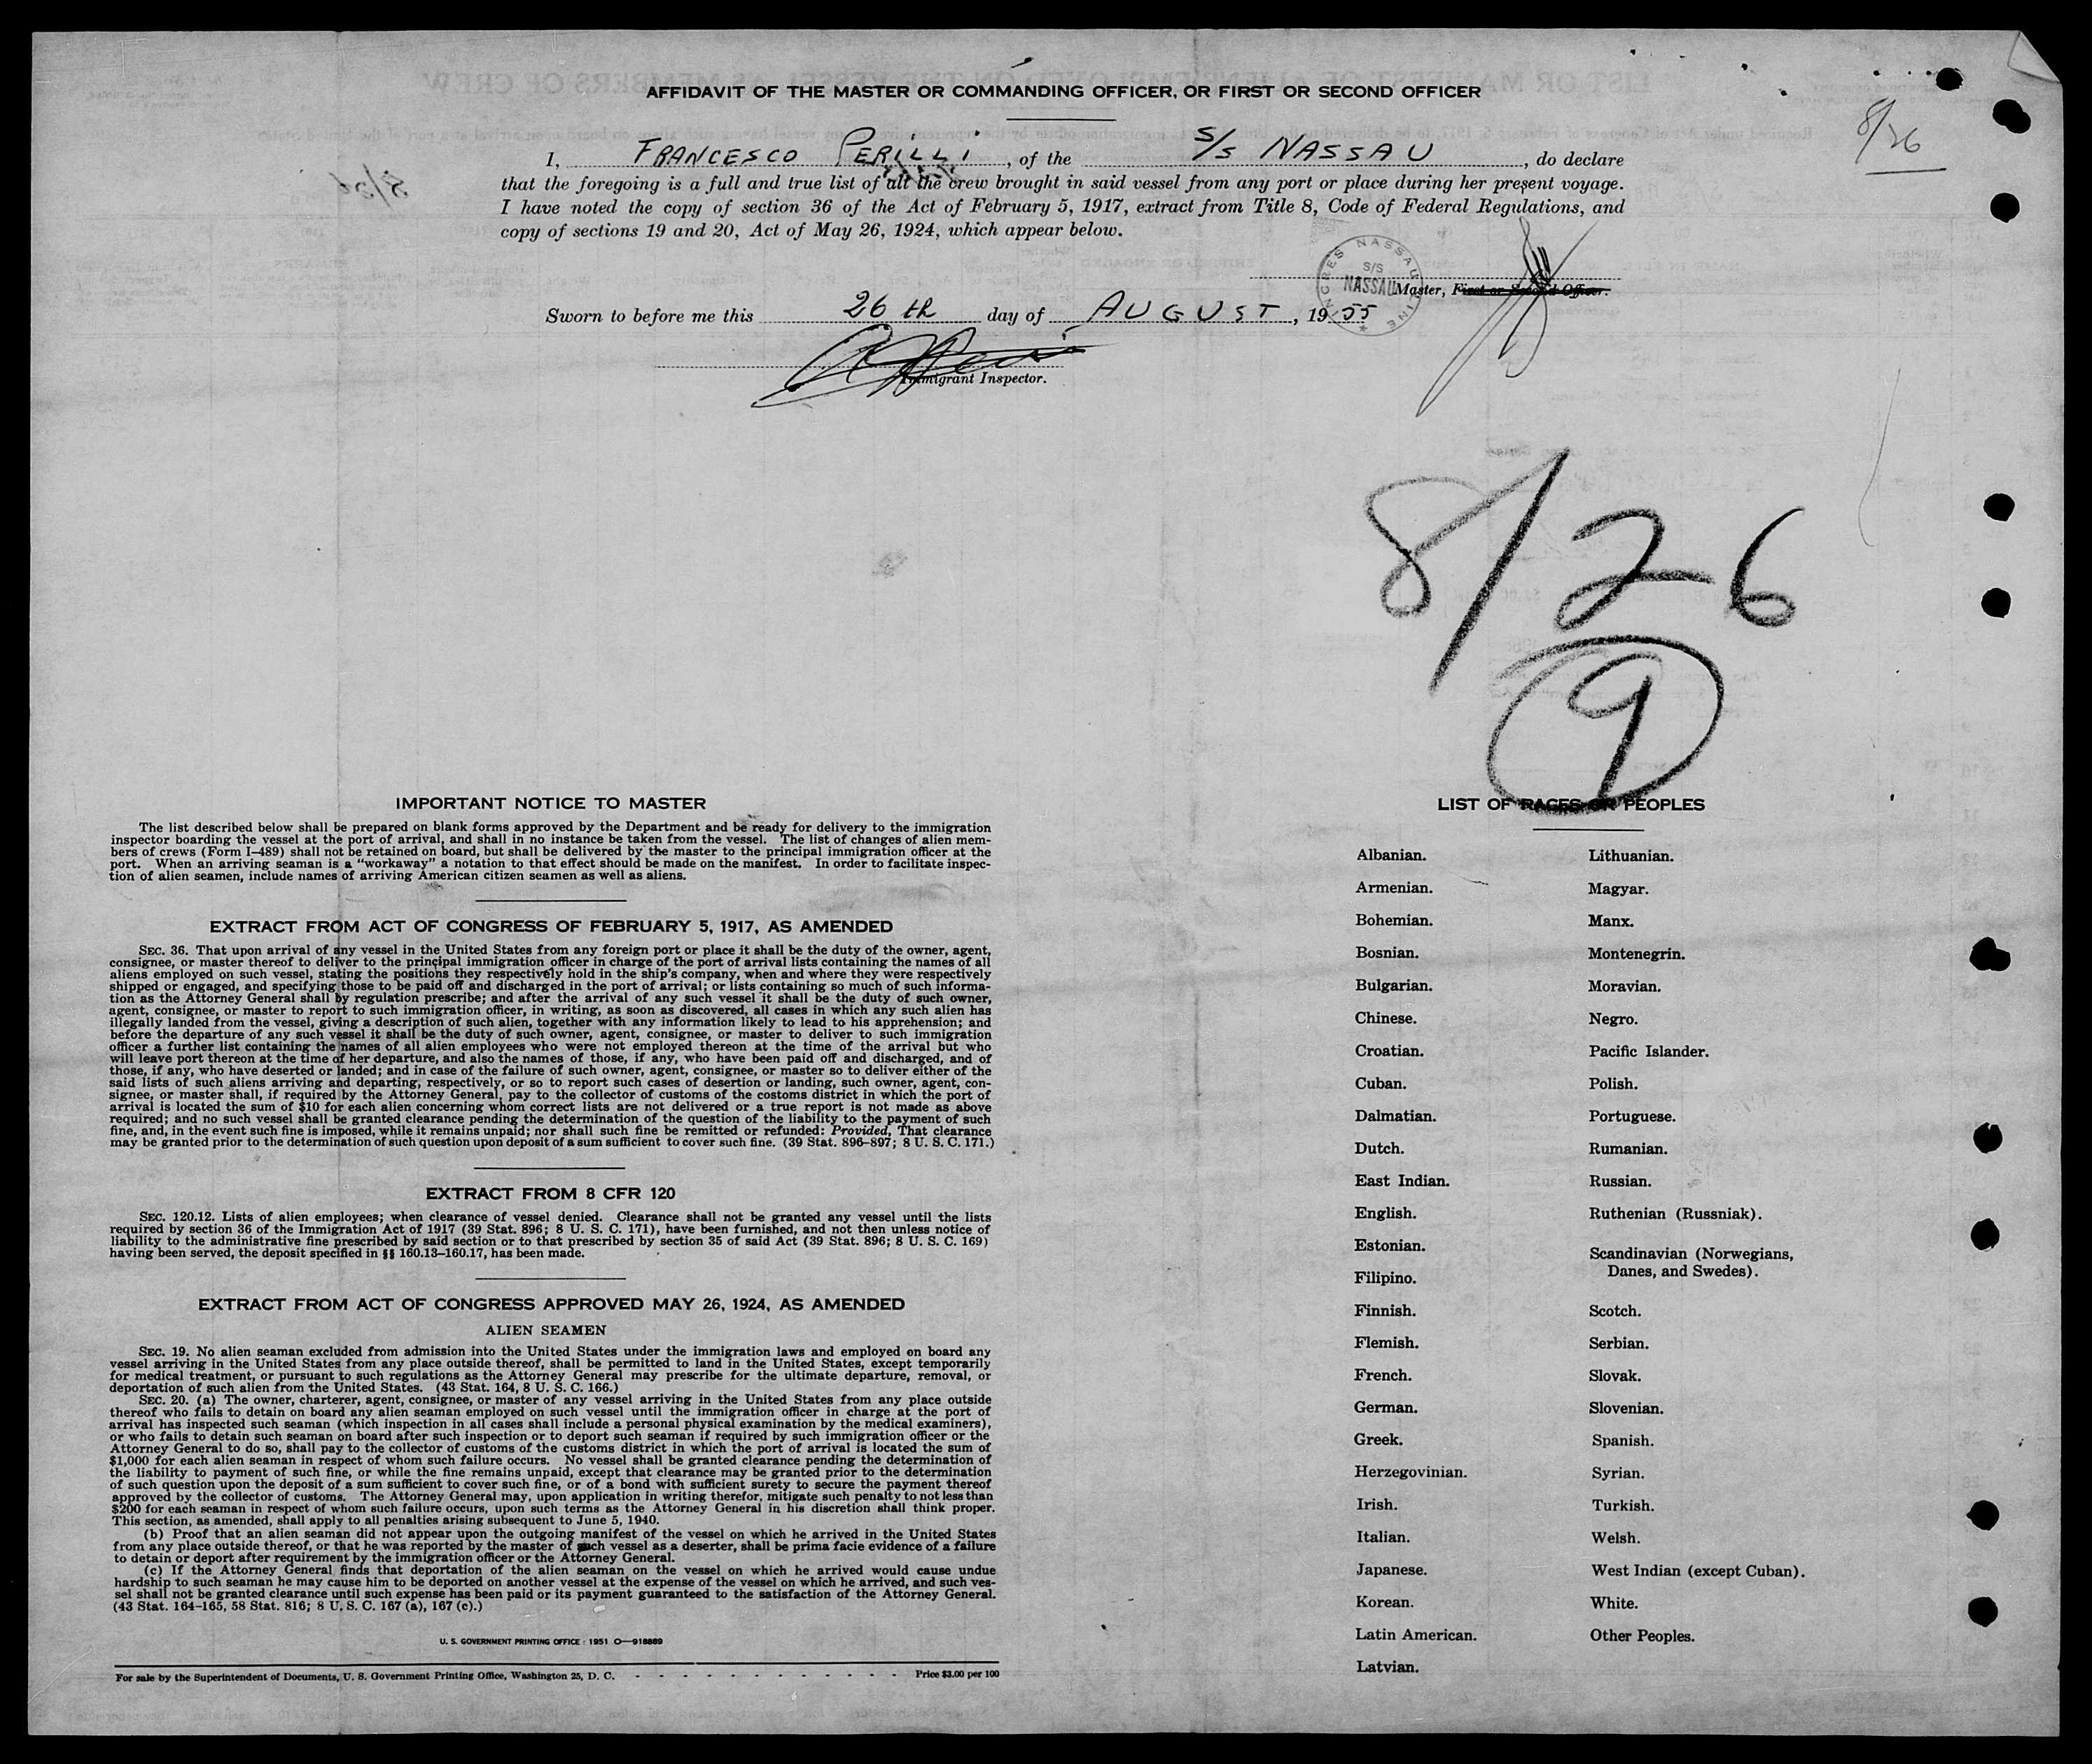 AFFIDAVIT OF THE MASTER OR COMMANDING OFFICER, OR FIRST OR SECOND OFFICER
8/26
I, FRANCESCO PERILLI, of the S/S NASSAU, do declare
that the foregoing is a full and true list of all the crew brought in said vessel from any port or place during her present voyage.
I have noted the copy of section 36 of the Act of February 5, 1917, extract from Title 8, Code of Federal Regulations, and
copy of sections 19 and 20, Act of May 26, 1924, which appear below.
INGRES NASSAU LINE
S/S
NASSAU
Master, First or Second Officer.
Sworn to before me this 26 th day of AUGUST, 19 55
Immigrant Inspector.
8/26
9
IMPORTANT NOTICE TO MASTER
The list described below shall be prepared on blank forms approved by the Department and be ready for delivery to the immigration
inspector boarding the vessel at the port of arrival, and shall in no instance be taken from the vessel. The list of changes of alien mem-
bers of crews (Form I-489) shall not be retained on board, but shall be delivered by the master to the principal immigration officer at the
port. When an arriving seaman is a "workaway" a notation to that effect should be made on the manifest. In order to facilitate inspec-
tion of alien seamen, include names of arriving American citizen seamen as well as aliens.
EXTRACT FROM ACT OF CONGRESS OF FEBRUARY 5, 1917, AS AMENDED
SEC. 36. That upon arrival of any vessel in the United States from any foreign port or place it shall be the duty of the owner, agent,
consignee, or master thereof to deliver to the principal immigration officer in charge of the port of arrival lists containing the names of all
aliens employed on such vessel, stating the positions they respectively hold in the ship's company, when and where they were respectively
shipped or engaged, and specifying those to be paid off and discharged in the port of arrival; or lists containing so much of such informa-
tion as the Attorney General shall by regulation prescribe; and after the arrival of any such vessel it shall be the duty of such owner,
agent, consignee, or master to report to such immigration officer, in writing, as soon as discovered, all cases in which any such alien has
illegally landed from the vessel, giving a description of such alien, together with any information likely to lead to his apprehension; and
before the departure of any such vessel it shall be the duty of such owner, agent, consignee, or master to deliver to such immigration
officer a further list containing the names of all alien employees who were not employed thereon at the time of the arrival but who
will leave port thereon at the time of her departure, and also the names of those, if any, who have been paid off and discharged, and of
those, if any, who have deserted or landed; and in case of the failure of such owner, agent, consignee, or master so to deliver either of the
said lists of such aliens arriving and departing, respectively, or so to report such cases of desertion or landing, such owner, agent, con-
signee, or master shall, if required by the Attorney General, pay to the collector of customs of the costoms district in which the port of
arrival is located the sum of $10 for each alien concerning whom correct lists are not delivered or a true report is not made as above
required; and no such vessel shall be granted clearance pending the determination of the question of the liability to the payment of such
fine, and, in the event such fine is imposed, while it remains unpaid; nor shall such fine be remitted or refunded: Provided, That clearance
may be granted prior to the determination of such question upon deposit of a sum sufficient to cover such fine. (39 Stat. 896-897; 8 U. S. C. 171.)
EXTRACT FROM 8 CFR 120
SEC. 120.12. Lists of alien employees; when clearance of vessel denied. Clearance shall not be granted any vessel until the lists
required by section 36 of the Immigration Act of 1917 (39 Stat. 896; 8 U. S. C. 171), have been furnished, and not then unless notice of
liability to the administrative fine prescribed by said section or to that prescribed by section 35 of said Act (39 Stat. 896; 8 U. S. C. 169)
having been served, the deposit specified in §§ 160.13-160.17, has been made.
EXTRACT FROM ACT OF CONGRESS APPROVED MAY 26, 1924, AS AMENDED
ALIEN SEAMEN
SEC. 19. No alien seaman excluded from admission into the United States under the immigration laws and employed on board any
vessel arriving in the United States from any place outside thereof, shall be permitted to land in the United States, except temporarily
for medical treatment, or pursuant to such regulations as the Attorney General may prescribe for the ultimate departure, removal, or
deportation of such alien from the United States. (43 Stat. 164, 8 U. S. C. 166.)
SEC. 20. (a) The owner, charterer, agent, consignee, or master of any vessel arriving in the United States from any place outside
thereof who fails to detain on board any alien seaman employed on such vessel until the immigration officer in charge at the port of
arrival has inspected such seaman (which inspection in all cases shall include a personal physical examination by the medical examiners),
or who fails to detain such seaman on board after such inspection or to deport such seaman if required by such immigration officer or the
Attorney General to do so, shall pay to the collector of customs of the customs district in which the port of arrival is located the sum of
$1,000 for each alien seaman in respect of whom such failure occurs. No vessel shall be granted clearance pending the determination of
the liability to payment of such fine, or while the fine remains unpaid, except that clearance may be granted prior to the determination
of such question upon the deposit of a sum sufficient to cover such fine, or of a bond with sufficient surety to secure the payment thereof
approved by the collector of customs. The Attorney General may, upon application in writing therefor, mitigate such penalty to not less than
$200 for each seaman in respect of whom such failure occurs, upon such terms as the Attorney General in his discretion shall think proper.
This section, as amended, shall apply to all penalties arising subsequent to June 5, 1940.
(b) Proof that an alien seaman did not appear upon the outgoing manifest of the vessel on which he arrived in the United States
from any place outside thereof, or that he was reported by the master of such vessel as a deserter, shall be prima facie evidence of a failure
to detain or deport after requirement by the immigration officer or the Attorney General.
(c) If the Attorney General finds that deportation of the alien seaman on the vessel on which he arrived would cause undue
hardship to such seaman he may cause him to be deported on another vessel at the expense of the vessel on which he arrived, and such ves-
sel shall not be granted clearance until such expense has been paid or its payment guaranteed to the satisfaction of the Attorney General.
(43 Stat. 164-165, 58 Stat. 816; 8 U. S. C. 167 (a), 167 (c).)
U. S. GOVERNMENT PRINTING OFFICE : 1951 O—918889
For sale by the Superintendent of Documents, U. S. Government Printing Office, Washington 25, D. C. - - - - - - - - - - - - Price $3.00 per 100
LIST OF RACES OR PEOPLES
Albanian.
Armenian.
Bohemian.
Bosnian.
Bulgarian.
Chinese.
Croatian.
Cuban.
Dalmatian.
Dutch.
East Indian.
English.
Estonian.
Filipino.
Finnish.
Flemish.
French.
German.
Greek.
Herzegovinian.
Irish.
Italian.
Japanese.
Korean.
Latin American.
Latvian.
Lithuanian.
Magyar.
Manx.
Montenegrin.
Moravian.
Negro.
Pacific Islander.
Polish.
Portuguese.
Rumanian.
Russian.
Ruthenian (Russniak).
Scandinavian (Norwegians,
Danes, and Swedes).
Scotch.
Serbian.
Slovak.
Slovenian.
Spanish.
Syrian.
Turkish.
Welsh.
West Indian (except Cuban).
White.
Other Peoples.